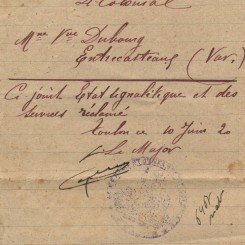 Colonial
Mme Vve Dubourg
Entrecasteaux (Var.)
Ci-joint Etat signalitique et des
services réclamé
Toulon ce 10 Juin 20
Le Major